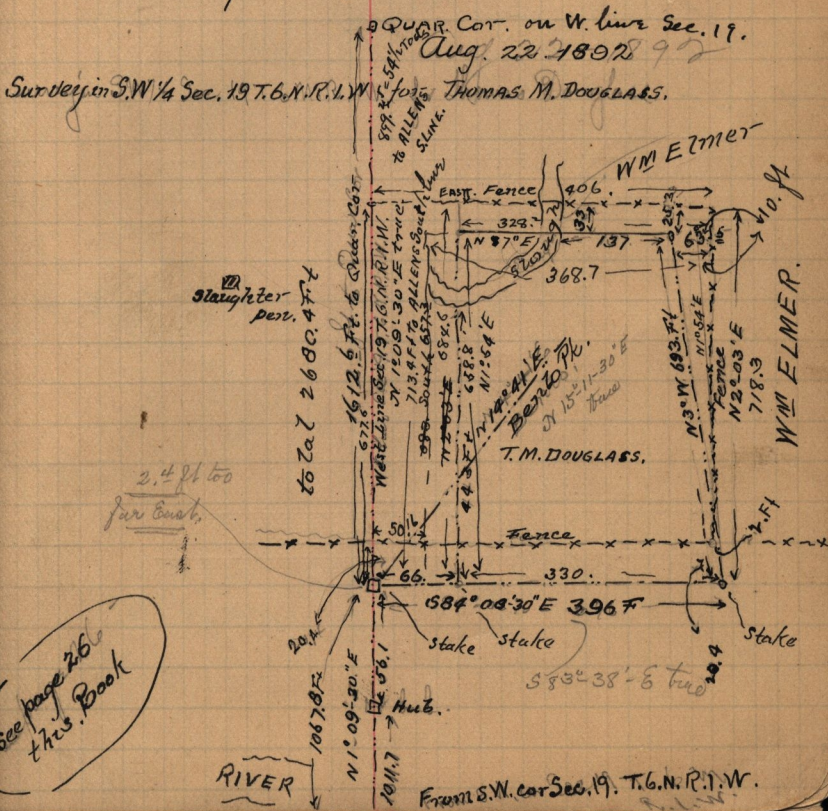 QUAR. COR. on W. line Sec. 19.
Aug. 22. 1892
Survey in S.W 1/4 Sec. 19 T.6.N.R.1.W for THOMAS M. DOUGLASS.
to ALLENS
S.LINE.
WM Elmer
EAST. Fence 406.
328.
33
N 87° E
137
Slough
368.7
10. ft
Slaughter
pen.
total 2680.4 Ft
1612.6 Ft. to Quar. Cor.
677.6
West Line Sec. 19 T.6.N.R.1.W.
N 1° 09'-30" E true
713.4 Ft to ALLENS South line
684.6
658.8
N 1° 54' E
N 14° 41' E
Bento Pk.
N 15°-11-30" E
true
N 3° W 693. Ft
N 1° 54' E
Fence
N 2°-03' E
718.3
WM ELMER.
T.M. DOUGLASS.
2.4 ft too
far East.
50
Fence
2. Ft
66.
330.
S 84° 08' 30" E 396 F
Stake
Stake
Stake
20.4
S 83°-38'-E true
See page 26
this. Book
1067.8 Ft
N 1°-09'-30" E
56.1
Hub.
1011.7
RIVER
From S.W. cor Sec. 19. T.6.N.R.1.W.